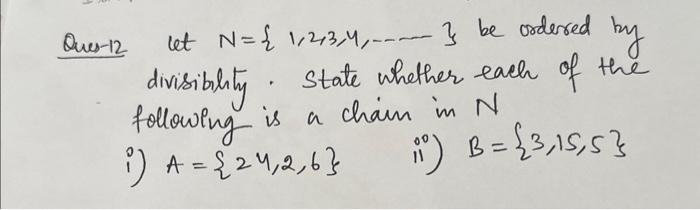 Ques-12 let N={ 1,2,3,4,----- } be ordered by
divisibility. State whether each of the
following is a chain in N
i) A={24,2,6} ii) B={3,15,5}